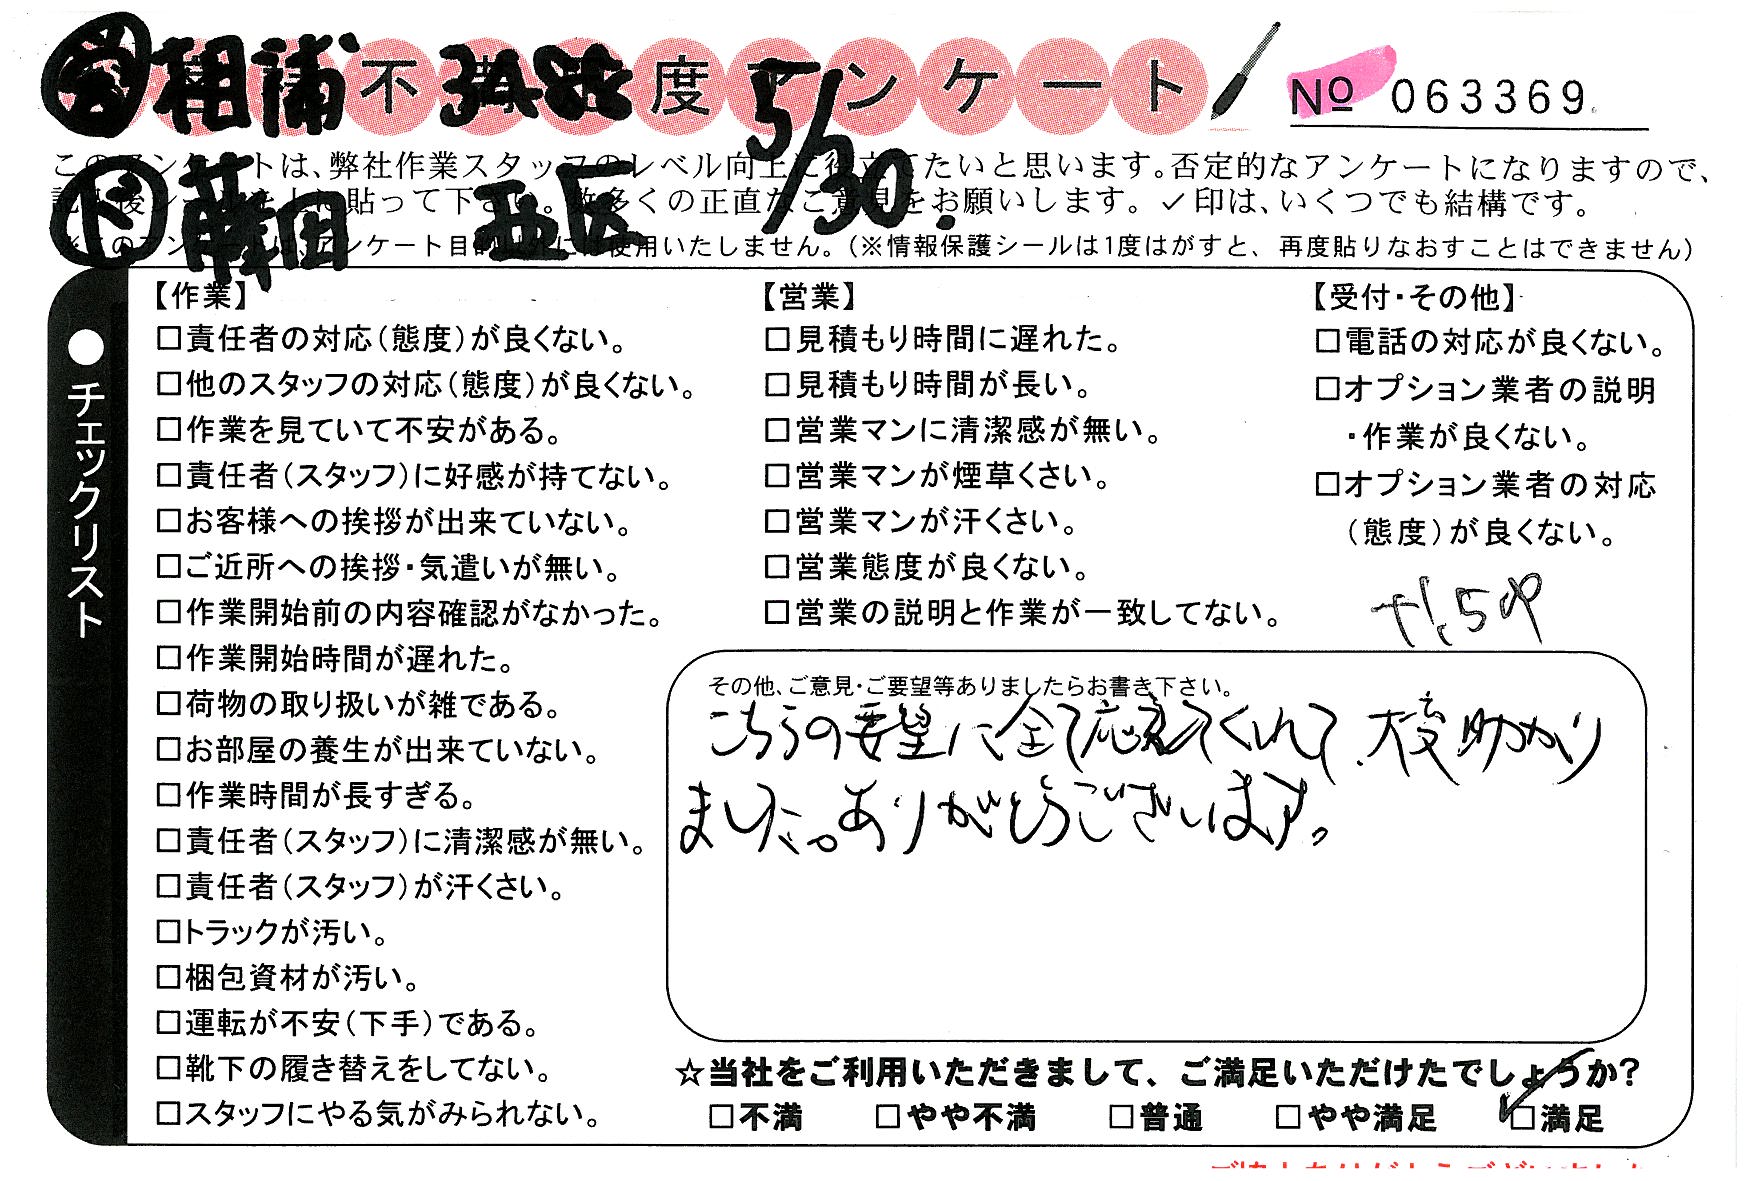 営 相浦 孤蛇 5/30.
ド 藤田 西区
不満度アンケート
No 063369
このアンケートは、弊社作業スタッフのレベル向上に役立てたいと思います。否定的なアンケートになりますので、
記入後シールを上に貼って下さい。数多くの正直なご意見をお願いします。✓印は、いくつでも結構です。
※このアンケートは、アンケート目的以外には使用いたしません。(※情報保護シールは1度はがすと、再度貼りなおすことはできません)
●チェックリスト
【作業】
□責任者の対応(態度)が良くない。
□他のスタッフの対応(態度)が良くない。
□作業を見ていて不安がある。
□責任者(スタッフ)に好感が持てない。
□お客様への挨拶が出来ていない。
□ご近所への挨拶・気遣いが無い。
□作業開始前の内容確認がなかった。
□作業開始時間が遅れた。
□荷物の取り扱いが雑である。
□お部屋の養生が出来ていない。
□作業時間が長すぎる。
□責任者(スタッフ)に清潔感が無い。
□責任者(スタッフ)が汗くさい。
□トラックが汚い。
□梱包資材が汚い。
□運転が不安(下手)である。
□靴下の履き替えをしてない。
□スタッフにやる気がみられない。
【営業】
□見積もり時間に遅れた。
□見積もり時間が長い。
□営業マンに清潔感が無い。
□営業マンが煙草くさい。
□営業マンが汗くさい。
□営業態度が良くない。
□営業の説明と作業が一致してない。
【受付・その他】
□電話の対応が良くない。
□オプション業者の説明
・作業が良くない。
□オプション業者の対応
(態度)が良くない。
その他、ご意見・ご要望等ありましたらお書き下さい。
こちらの要望に全て応えてくれて、大変助かり
ました。ありがとうございます。
☆当社をご利用いただきまして、ご満足いただけたでしょうか?
□不満 □やや不満 □普通 □やや満足 ✓□満足